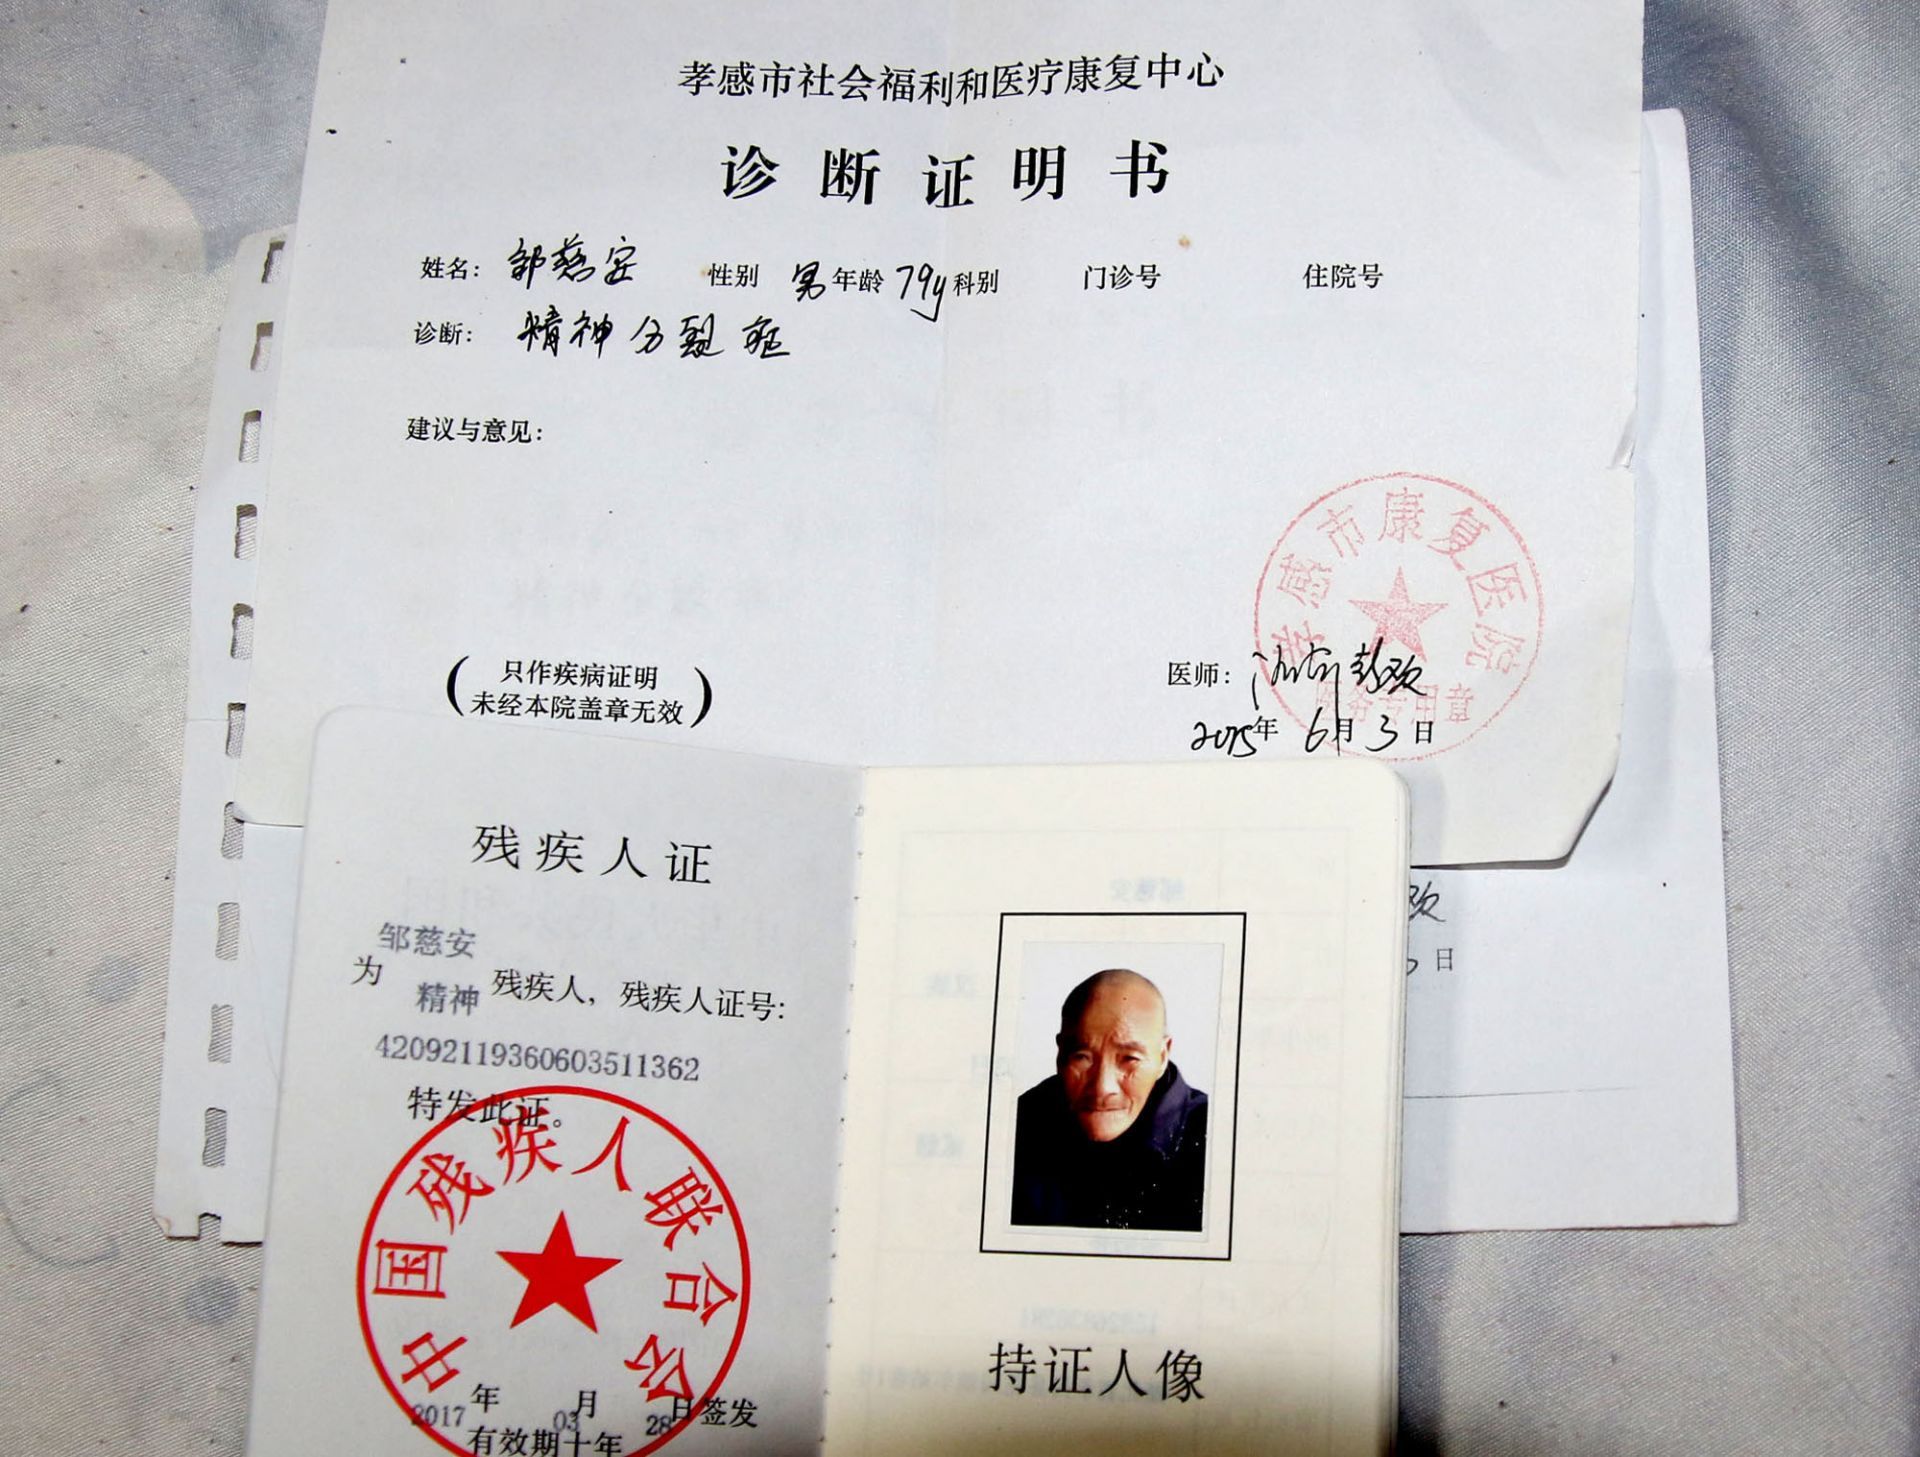 孝感市社会福利和医疗康复中心
诊断证明书
姓名：邹慈安 性别 男 年龄 79y 科别 门诊号 住院号
诊断：精神分裂症
建议与意见：
孝感市康复医院
医务专用章
（只作疾病证明
未经本院盖章无效）
医师：
2015年6月3日
欢
日
残疾人证
邹慈安
为 精神 残疾人，残疾人证号：
42092119360603511362
特发此证。
中国残疾人联合会
2017年03月28日签发
有效期十年
持证人像